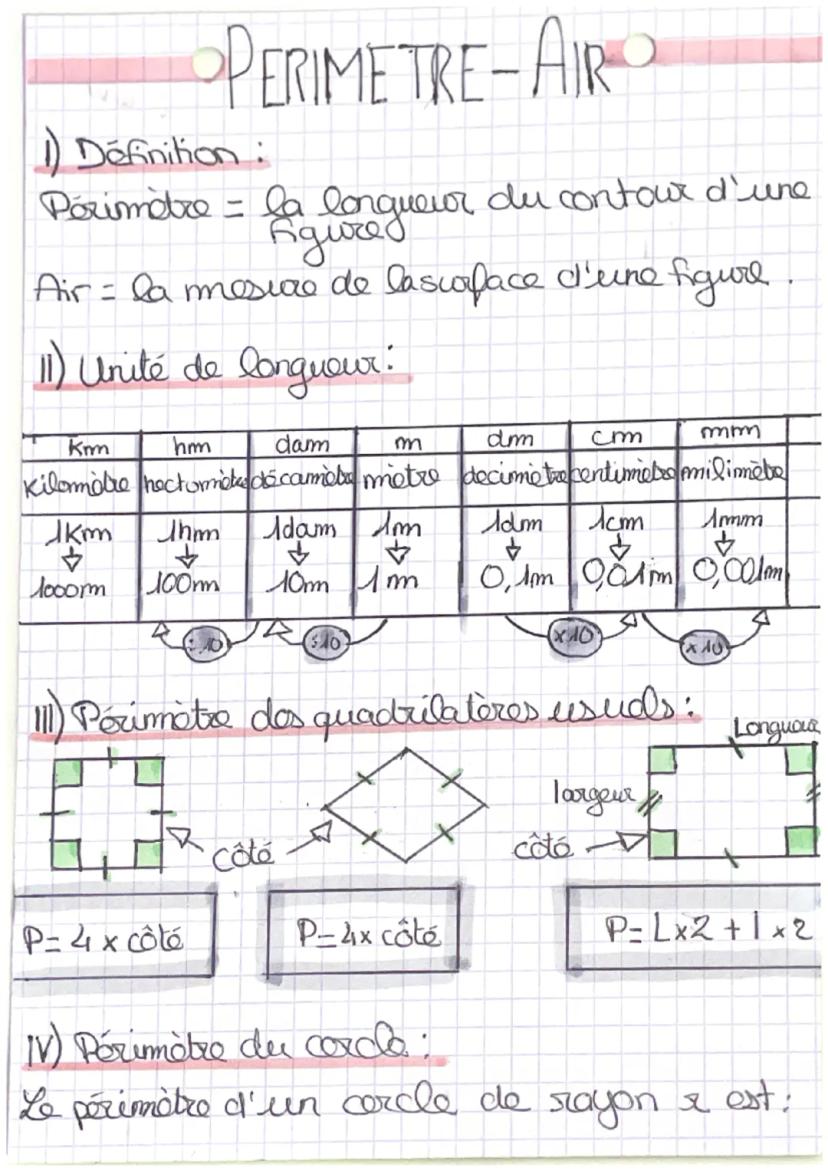 PERIMETRE-AIR
I) Définition :
Périmètre = la longueur du contour d'une
figure
Air = la mesure de la surface d'une figure .
II) Unité de longueur :
Km hm dam m dm cm mm
Kilomètre hectomètre décamètre mètre decimètre centimètre milimètre
1Km 1hm 1dam 1m 1dm 1cm 1mm
1000m 100m 10m 1m 0,1m 0,01m 0,001m
:10 :10 x10 x10
III) Périmètre des quadrilatères usuels :
Longueur
largeur
côté côté
P= 4 x côté P= 4x côté P= L x 2 + l x 2
IV) Périmètre du cercle :
Le périmètre d'un cercle de rayon r est :